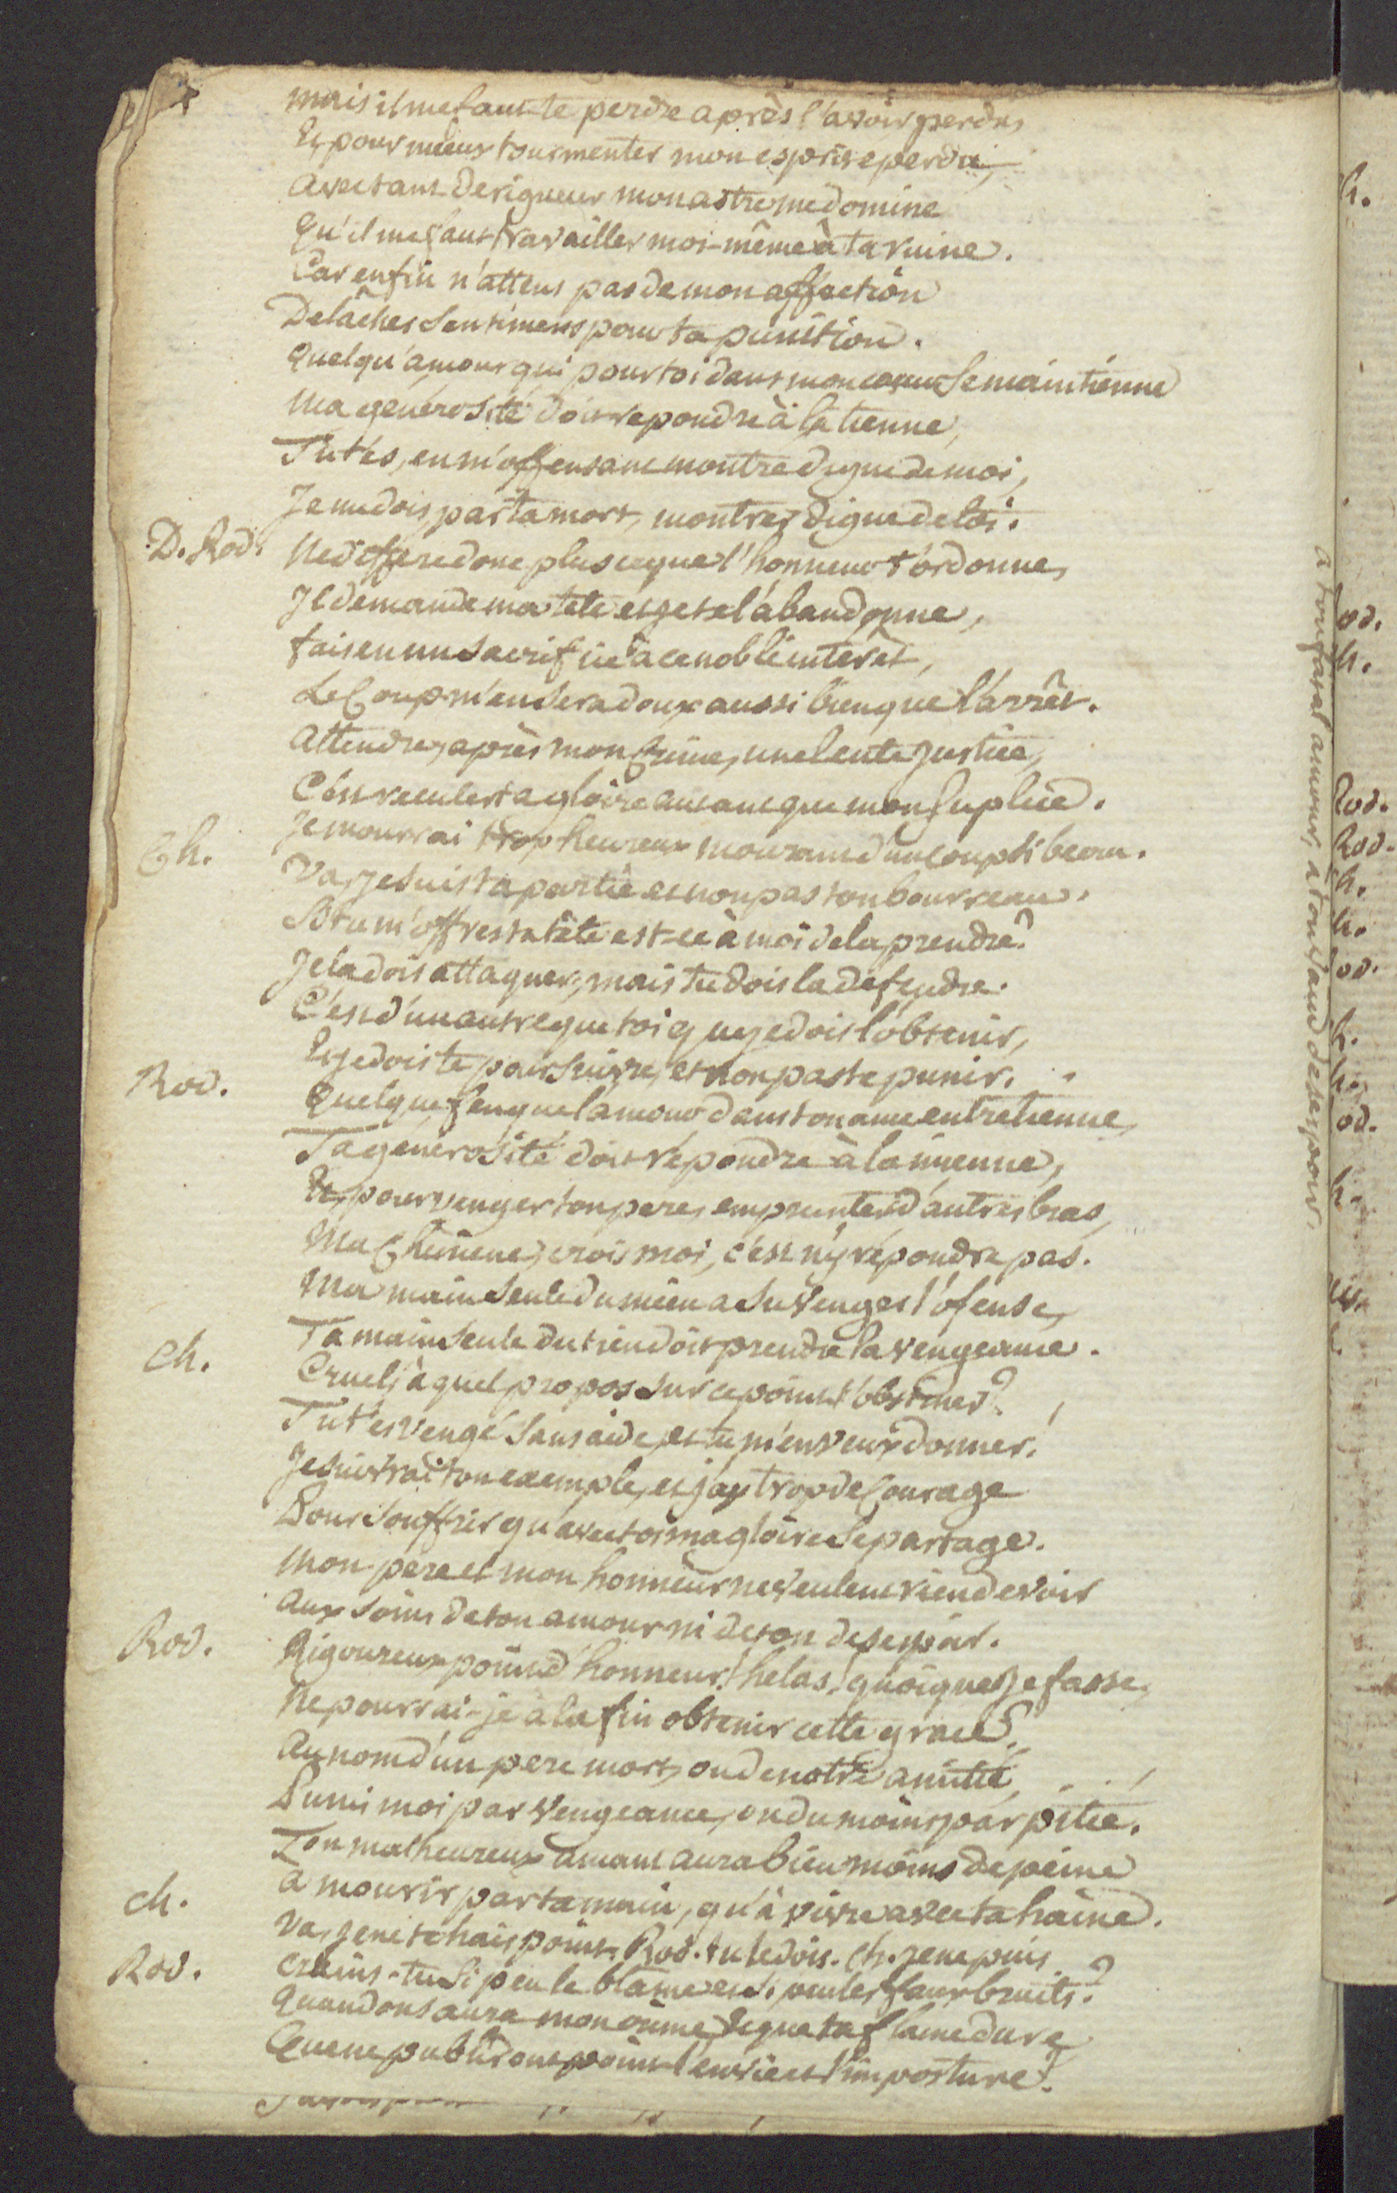 mais il me faut te perdre après l'avoir perdu,
Et pour mieux tourmenter mon esprit eperdu,
avec tant de rigueur mon astre me domine
qu'il me faut travailler moi-même à ta ruine.
Car enfin n'attens pas de mon affection
De lâches sentimens pour ta punition.
quelqu'amour qui pour toi dans mon cœur se maintienne
ma générosité doit repondre à la tienne,
Tu t'és, en m'offensant montré digne de moi,
Je me dois, par ta mort, montrer digne de toi.
D. Rod. Ne differe donc plus ce que l'honneur t'ordonne,
Il demande ma tete et je te l'abandonne,
fais en un sacrifice à ce noble intérêt,
Le Coup m'en sera doux aussi bien que l'arrêt.
attendre, après mon Crime, une lente justice,
C'est reculer ta gloire autant que mon suplice.
Je mourrai trop heureux mourant d'un coup si beau.
Ch. Va, je suis ta partie et non pas ton bourreau.
Si tu m'offres ta tête est-ce à moi de la prendre?
Je la dois attaquer, mais tu dois la défendre.
C'est d'un autre que toi que je dois l'obtenir,
Et je dois te poursuivre, et non pas te punir.
Rod. quelque feu que l'amour dans ton ame entretienne,
Ta générosité doit répondre à la mienne,
Et, pour venger ton pere, emprunter d'autres bras,
Ma Chimene, crois moi, c'est n'y répondre pas.
Ma main seule du mien a su venger l'ofense,
Ta main seule du tien doit prendre la vengeance.
Ch. Cruel, à quel propos sur ce point t'obstiner?
Tu t'es vengé sans aide, et tu m'en veux donner!
Je suivrai ton exemple, et j'ay trop de Courage
Pour souffrir qu'avec toi ma gloire se partage.
Mon pere et mon honneur ne veulent rien devoir
aux soins de ton amour ni de ton desespoir.
Rod. Rigoureux point d'honneur! hélas! quoique je fasse,
Ne pourrai-je à la fin obtenir cette grace?
au nom d'un pere mort, ou de notre amitié,
Punis moi par vengeance, ou du moins par pitié.
Ton malheureux amant aura bien moins de peine
a mourir par ta main, qu'à vivre avec ta haine.
ch. Va, je ne te hais point. Rod. tu le dois. Ch. je ne puis.
Rod. crains-tu si peu le blame et si peu les faux bruits?
quand on saura mon crime, et que ta flame dure
Que ne publiront point l'envie et l'imposture?
a ton amour, a ton desespoir.
h.
od.
h.
Rod.
Rod.
h.
h.
od.
h.
h.
od.
h.